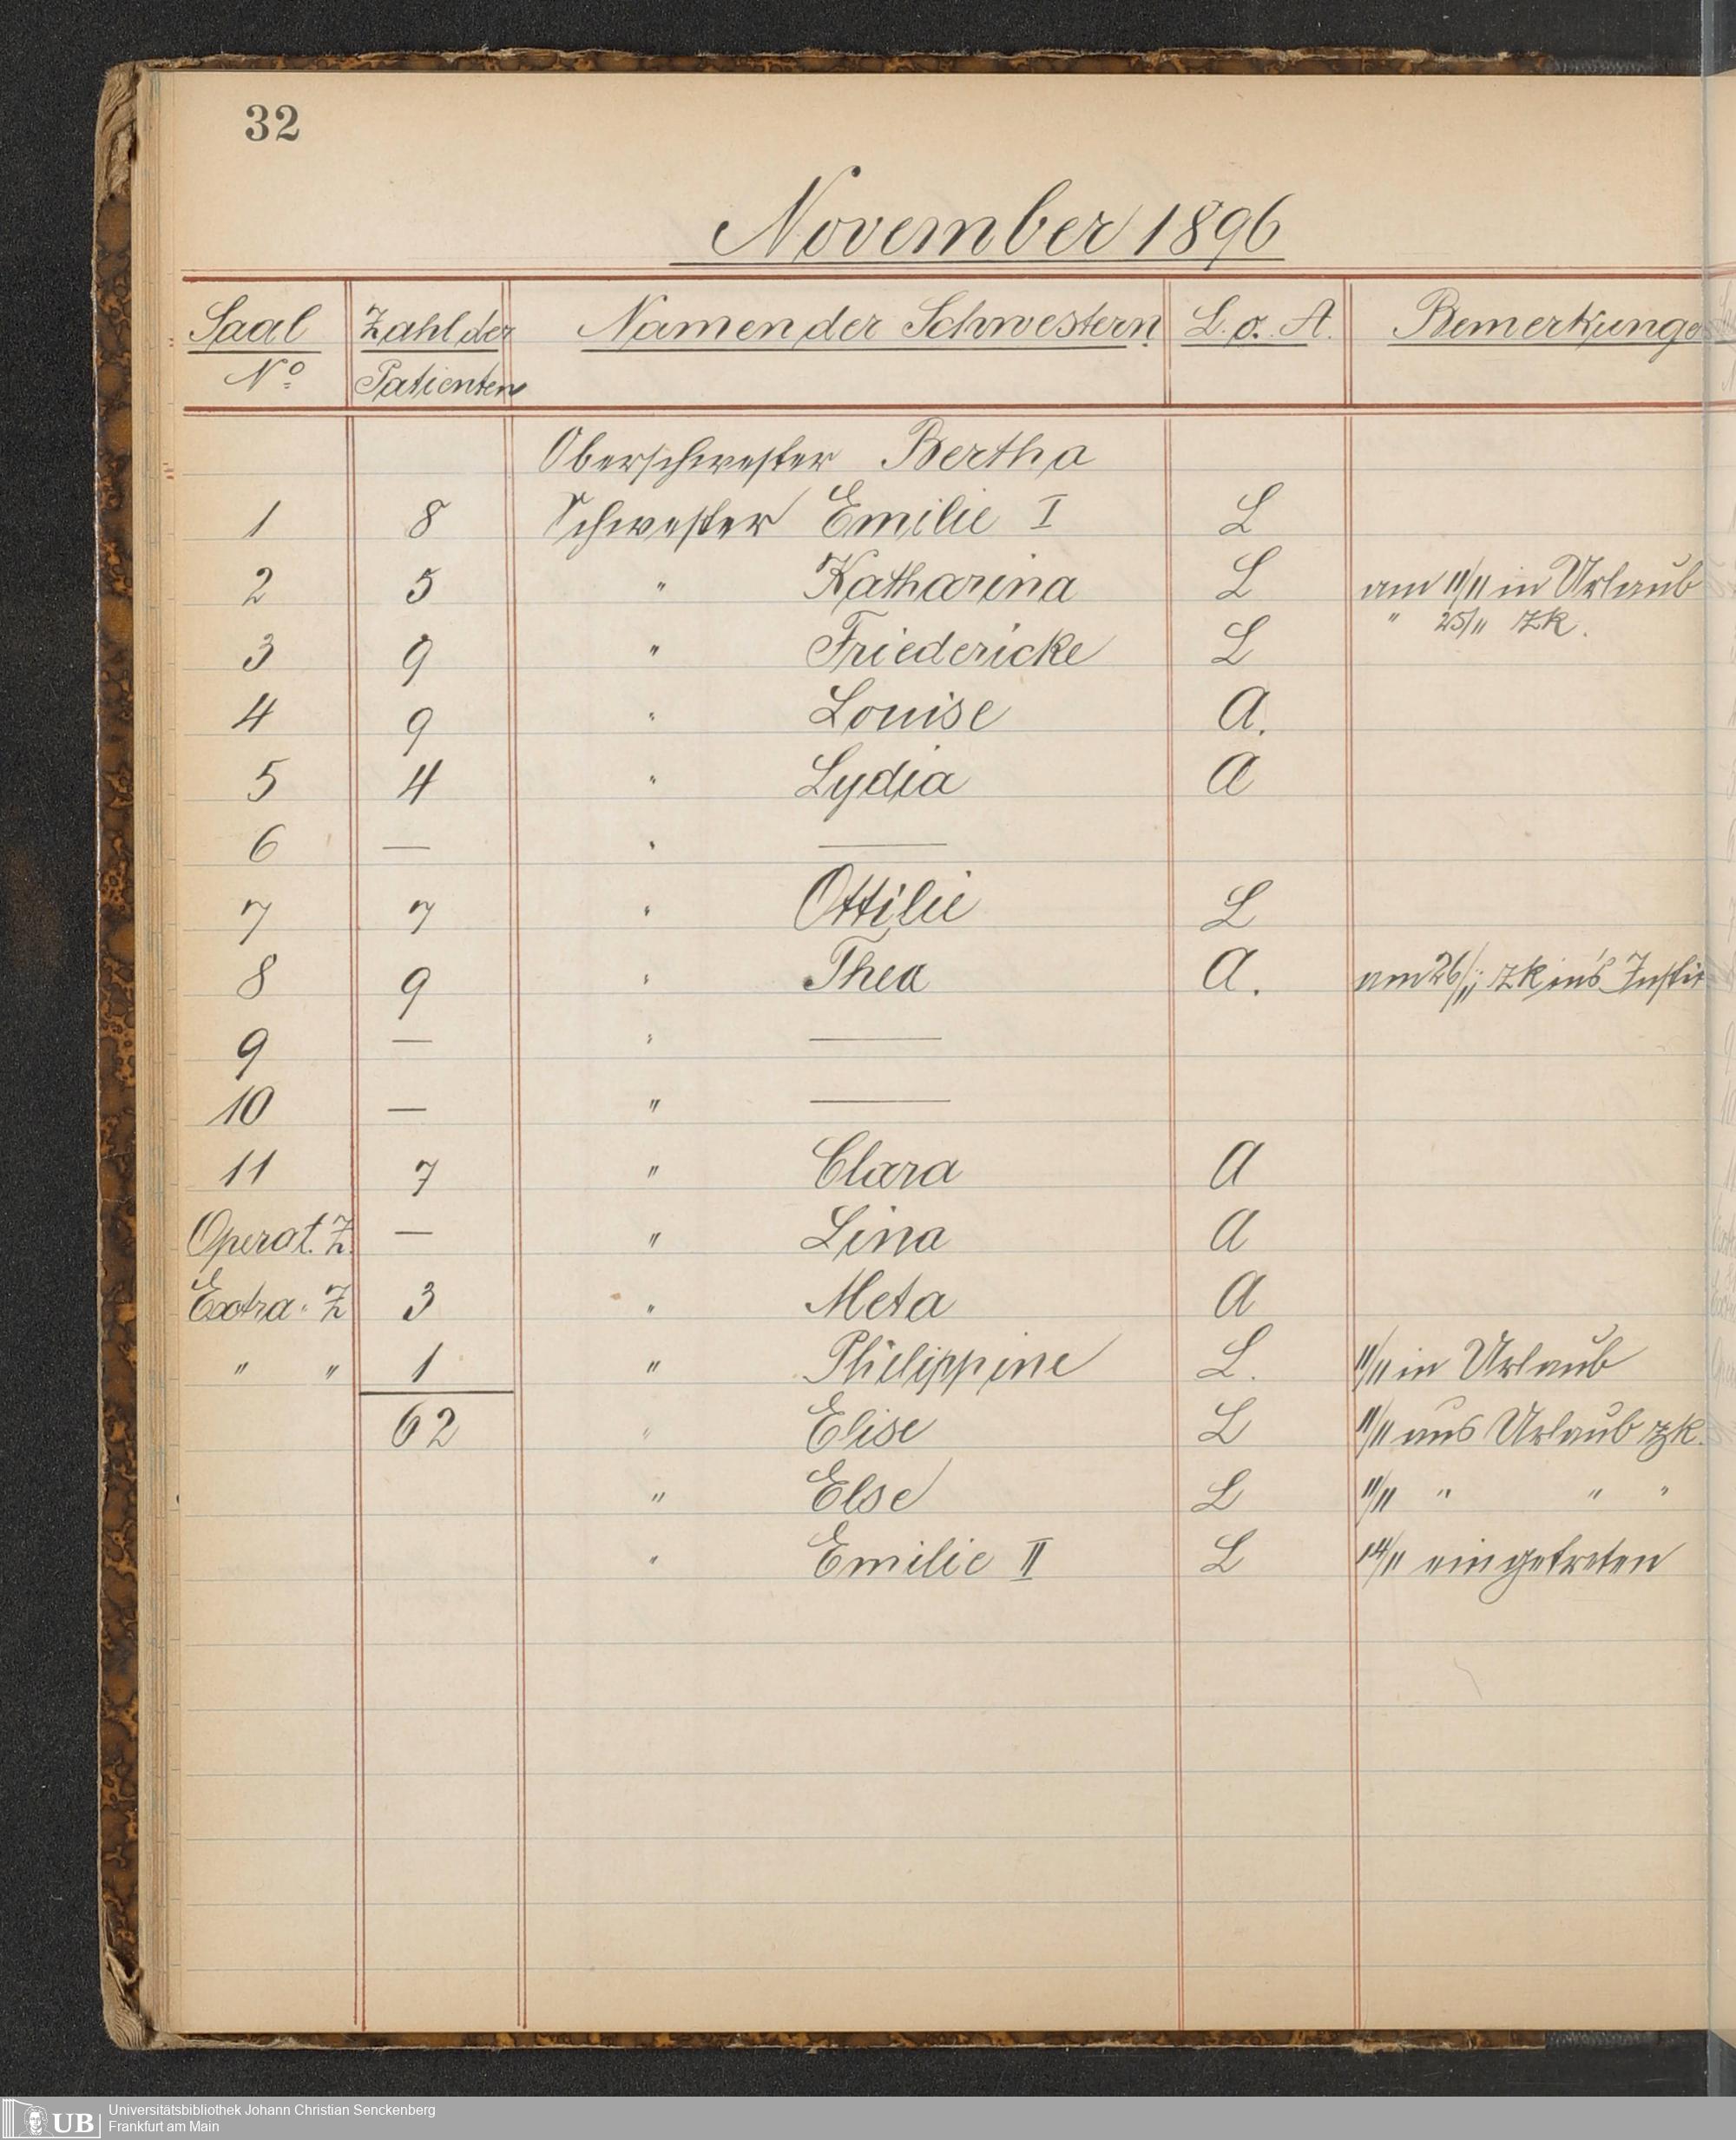 32
November 1896
Saal Zahl der Namen der Schwestern L. o. A. Bemerkunge
No Patienten
Oberschwester Bertha
1 8 Schwester Emilie I L
2 5 " Katharina L am 11/11 in Urlaub
" 25/11 zk.
3 9 " Friedericke L
4 9 " Louise A.
5 4 " Lydia A
6 — " —
7 7 " Ottilie L
8 9 " Thea A. am 26/11 zk ins Instit
9 — " —
10 — " —
11 7 " Clara A
Operat. Z. — " Lina A
Extra-Z 3 " Meta A
" " 1 " Philippine L. 11/11 in Urlaub
62 " Elise L 11/11 aus Urlaub zk.
" Else L 11/11 " " "
" Emilie II L 14/11 eingetreten
UB Universitätsbibliothek Johann Christian Senckenberg
Frankfurt am Main